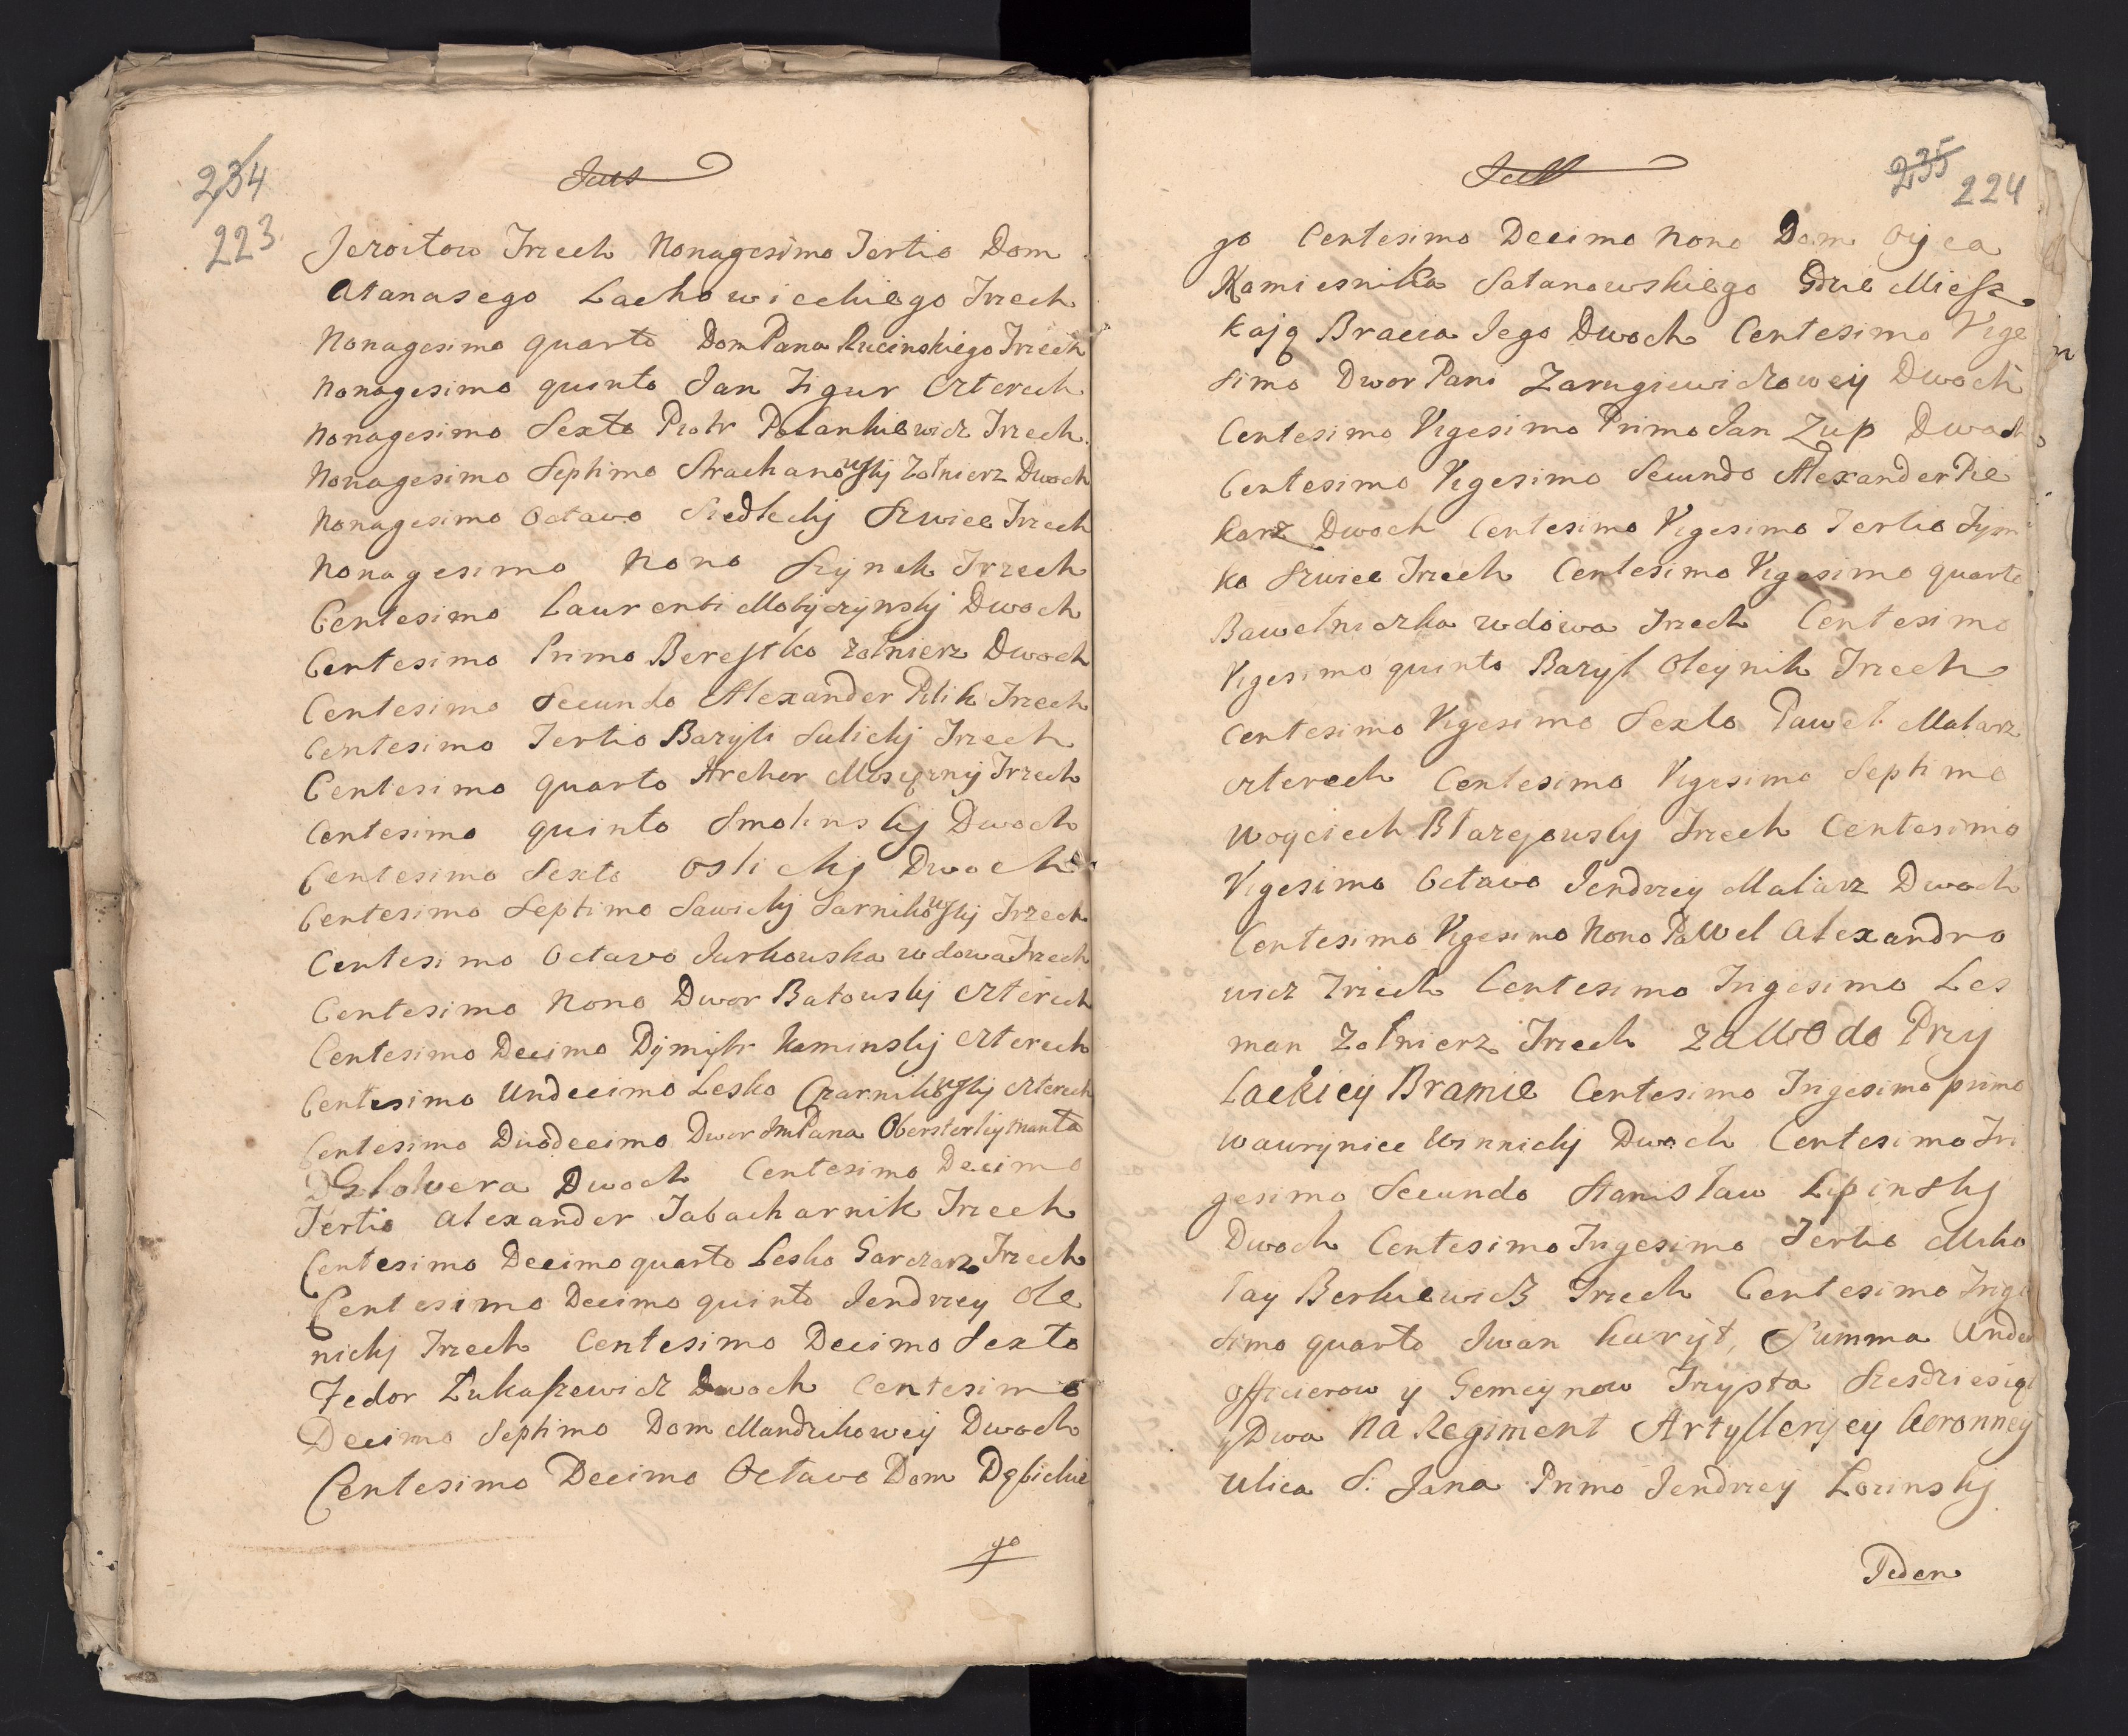 234
223
Jeroztow Trzech Nonagesimo Tertio Dom
Atanasego Lachowieckiego Trzech
Nonagesimo quarto Dom Pana Rucinskiego Trzech
Nonagesimo quinto Jan Figur czterech
Nonagesimo Sexto Piotr Polankiewicz Trzech
Nonagesimo Septimo Strachanowskij Zołnierz Dwoch
Nonagesimo Octavo Siedleckij Szwiec Trzech
Nonagesimo Nono Szÿnek Trzech
Centesimo Laurenti Mobijczijnskij Dwoch
Centesimo Primo Berestko zołnierz Dwoch
Centesimo Secundo Alexander Pilik Trzech
Centesimo Tertio Bazyli Sulickij Trzech
Centesimo quarto Archer Mosięznij Trzech
Centesimo quinto Smolinskij Dwoch
Centesimo Sexto Oslickij Dwoch
Centesimo Septimo Sawickij Sarnikowskij Trzech
Centesimo Octavo Jurkowska wdowa Trzech
Centesimo Nono Dwor Batowskij czterech
Centesimo Decimo Dÿmÿtr Kaminskij czterech
Centesimo Undecimo Lesko Czarnikowskij czterech
Centesimo Duodecimo Dwor Jm Pana Obersterleÿtnanta
D Glowera Dwoch Centesimo Decimo
Tertio Alexander Tabacharnik Trzech
Centesimo Decimo quarto Lesko Garczarz Trzech
Centesimo Decimo quinto Jendrzey Ole
nickij Trzech Centesimo Decimo Sexto
Fedor Łukaszewicz Dwoch Centesimo
Decimo Septimo Dom Mandzikoweÿ Dwoch
Centesimo Decimo Octavo Dom Dębickie
go
235
224
go Centesimo Decimo Nono Dom Oÿca
Kamiesnika Satanowskiego Gdzie Miesz
kają Bracia Jego Dwoch Centesimo Vige
simo Dwor Pani Zarugiewiczoweÿ Dwoch
Centesimo Vigesimo Primo Jan Zup Dwoch
Centesimo Vigesimo Secundo Alexander Pie
karz Dwoch Centesimo Vigesimo Tertio Tÿm
ko Szwiec Trzech Centesimo Vigesimo quarto
Bawełniczka wdowa Trzech Centesimo
Vigesimo quinto Bazÿl Oleÿnik Trzech
Centesimo Vigesimo Sexto Paweł Malarz
czterech Centesimo Vigesimo Septimo
Woyciech Błazejowskij Trzech Centesimo
Vigesimo Octavo Jendrzeÿ Malarz Dwoch
Centesimo Vigesimo Nono Pawel Alexandro
wicz Trzech Centesimo Trigesimo Les
man Zołnierz Trzech Za Wodo Przÿ
Lackieÿ Bramie Centesimo Trigesimo primo
Wawrÿniec Winnickij Dwoch Centesimo Tri
gesimo Secundo Stanisław Lipinskij
Dwoch Centesimo Trigesimo Tertio Miko
łay Berkiewicz Trzech Centesimo Trige
simo quarto Iwan Kurÿt, Summa Under
Officierow ÿ Gemeÿnow Trzÿsta Szesdziesiąt
ÿ Dwa Na Regiment Artÿlleriÿey Koronneÿ
Ulica S: Jana Primo Jendrzeÿ Lozinskij
Jeden